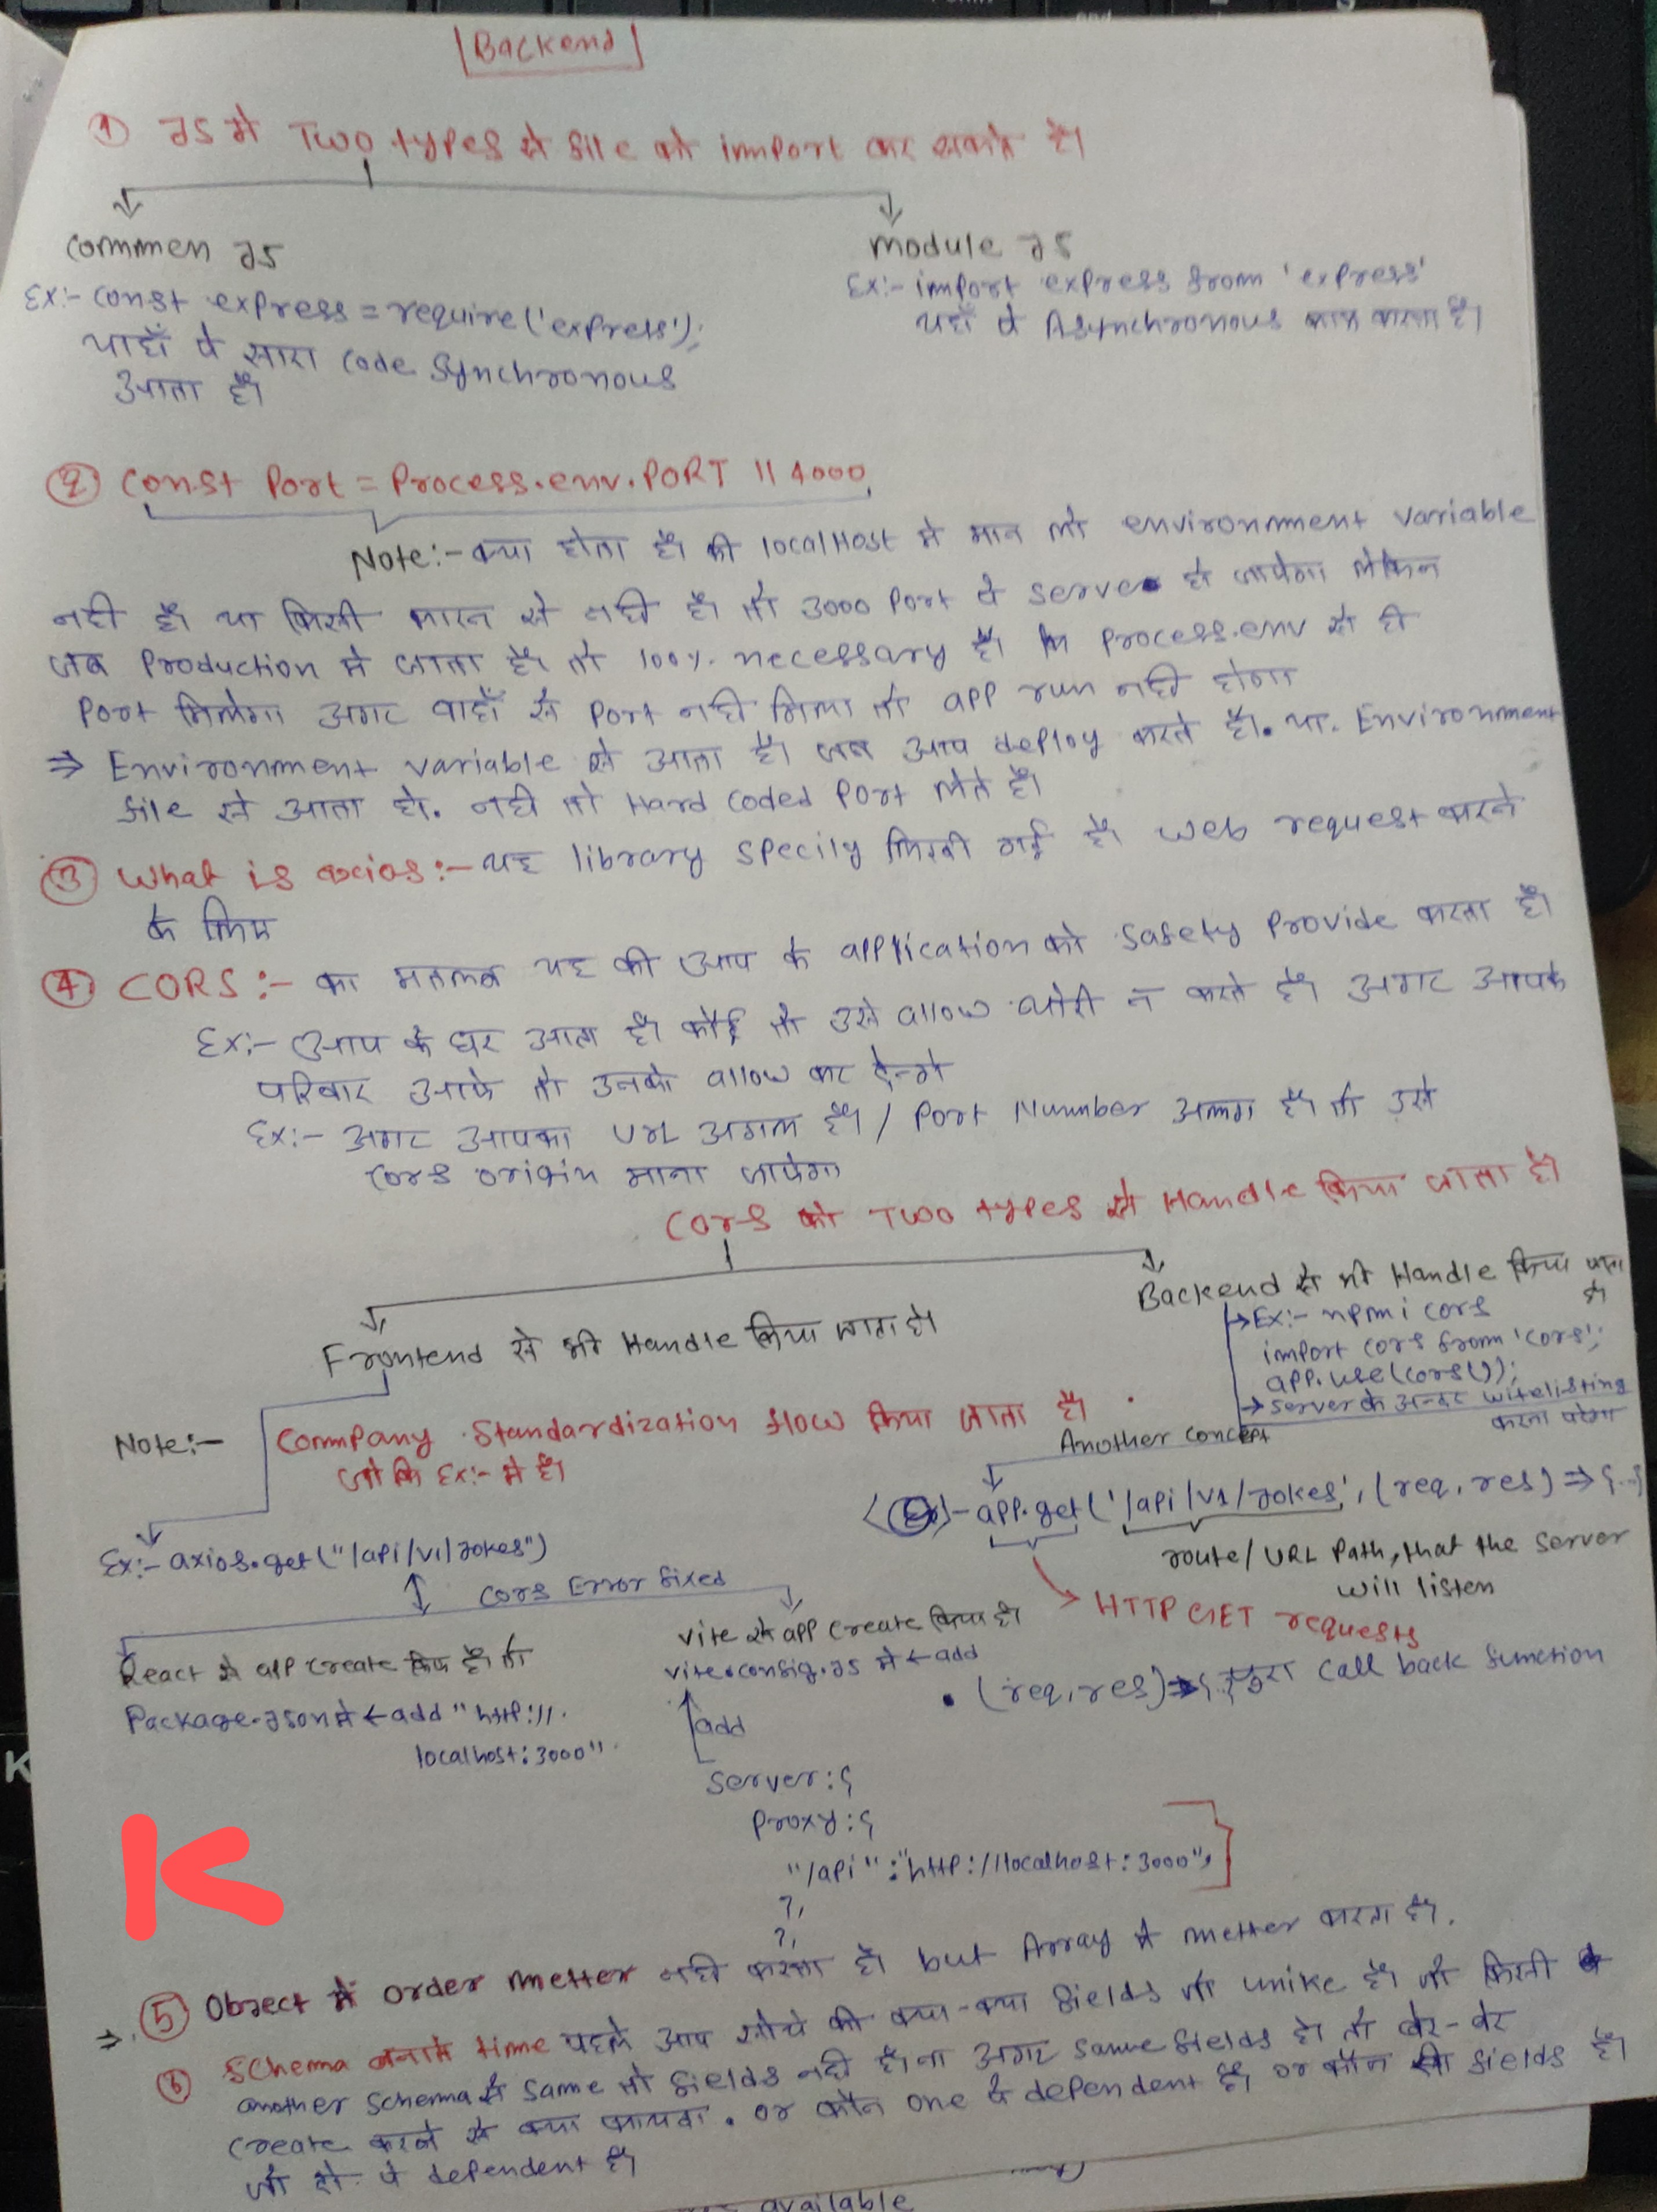 Backend
① JS मे Two types से file को import कर सकते है।
Commen JS
Ex:- const express = require('express');
याहाँ पे सारा code synchronous
आता है।
module JS
Ex:- import express from 'express'
यहाँ पे Asynchronous काम करता है।
② Const Port = Process.env.PORT || 4000,
Note:- क्या होता है। की localHost मे मान लो environment variable
नही है। या किसी कारन से नही है। तो 3000 Port पे serve हो जायेगा लेकिन
जब Production मे जाता है। तो 100% necessary है। कि Process.env से ही
Port मिलेगा अगर वाहाँ से Port नही मिला तो app run नही होगा
⇒ Environment variable से आता है। जब आप deploy करते है। या. Environment
file से आता हो. नही तो Hard coded Port लेते है।
③ What is axios:- यह library specily लिखी गई है। web request करने
के लिए
④ CORS:- का मतलब यह की आप के application को Safety Provide करता है।
Ex:- आप के घर आता है। कोई तो उसे allow थोरी न करते है। अगर आपके
परिवार आके तो उनको allow कर देन्गे
Ex:- अगर आपका URL अगल है। / Port Number अलग है। तो उसे
Cors origin माना जायेगा
Cors को Two types से Handle किया जाता है।
Frontend से भी Handle किया जाता है।
Backend से भी Handle किया जाता
है।
→ Ex:- npm i cors
import cors from 'cors';
app.use(cors());
→ Server के अन्दर witelisting
करना परेगा
Note:- Company Standardization flow किया जाता है।
जो कि Ex:- मे है।
Another concept
(Ex)- app.get('/api/v1/jokes', (req, res) => {...}
route/URL Path, that the server
will listen
HTTP GET requests
• (req, res) => { } पुरा Call back function
Ex:- axios.get("/api/v1/jokes")
Cors Error fixed
React से app create किए है। तो
Package.json मे ← add "http://
localhost:3000"
vite से app create किया है।
vite.config.js मे ← add
add
Server: {
Proxy: {
"/api": "http://localhost:3000",
},
},
⑤ Object मे order metter नही करता है। but Array मे metter करता है।
⇒ ⑥ Schema बनाते time पहले आप सोचे की क्या-क्या fields जो unike है। जो किसी
another schema से same तो fields नही है। ना अगर same fields हो तो बेर-बेर
create करने से क्या फायदा. or कौन one पे dependent है। or कौन सी fields है।
जो से पे dependent है।
available